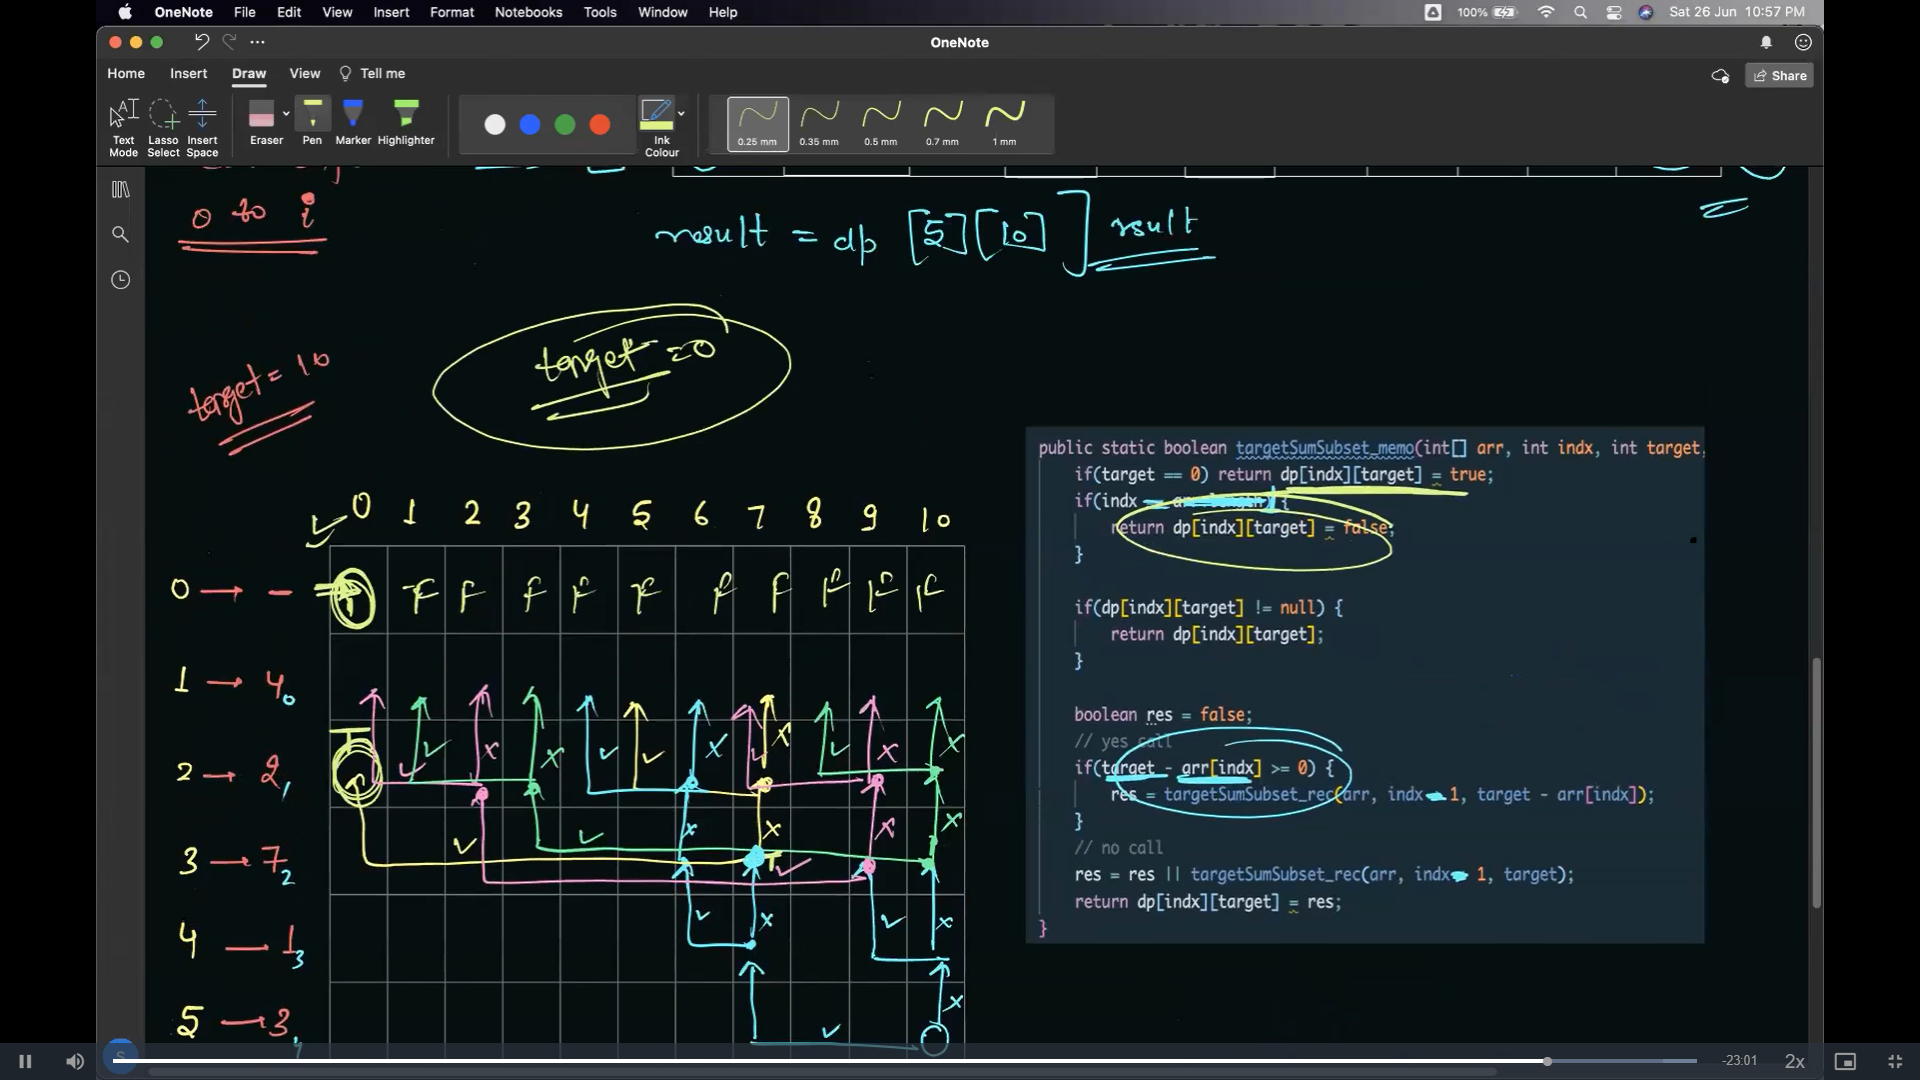 OneNote File Edit View Insert Format Notebooks Tools Window Help 100% Sat 26 Jun 10:57 PM
OneNote
Home Insert Draw View Tell me Share
Text Mode Lasso Select Insert Space Eraser Pen Marker Highlighter Ink Colour 0.25 mm 0.35 mm 0.5 mm 0.7 mm 1 mm
0 to i
result = dp [5][10] ] result
target = 10
target = 0
public static boolean targetSumSubset_memo(int[] arr, int indx, int target,
if(target == 0) return dp[indx][target] = true;
if(indx {
return dp[indx][target] = false;
}
if(dp[indx][target] != null) {
return dp[indx][target];
}
boolean res = false;
// yes call
if(target - arr[indx] >= 0) {
res = targetSumSubset_rec(arr, indx - 1, target - arr[indx]);
}
// no call
res = res || targetSumSubset_rec(arr, indx - 1, target);
return dp[indx][target] = res;
}
0 1 2 3 4 5 6 7 8 9 10
0 → - T F F F F F F F F F F
1 → 4 0
2 → 2 1 T
3 → 7 2 T
4 → 1 3
5 → 3 4
-23:01 2x